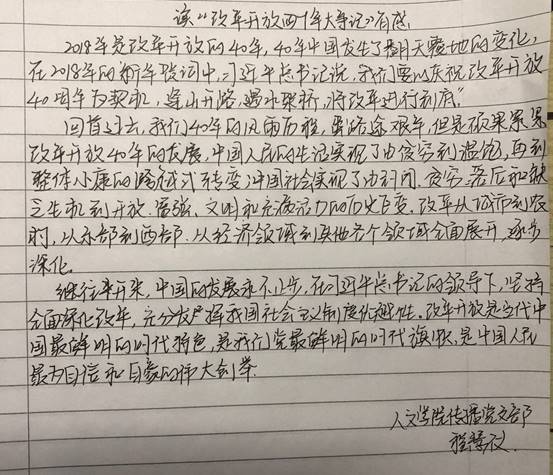 读“改革开放四十年大事记”有感
2018年是改革开放的40年,40年中国发生了翻天覆地的变化,
在2018年的新年致词中,习近平总书记说,我们要以庆祝改革开放
40周年为契机,逢山开路,遇水架桥,将改革进行到底”
回首过去,我们40年的风雨历程,虽路途艰辛,但是硕果累累
改革开放40年的发展,中国人民的生活实现了由贫穷到温饱,再到
整体小康的跨越式转变;中国社会实现了由封闭、贫穷、落后和缺
乏生机到开放、富强、文明和充满活力的历史巨变。改革从城市到农
村,从东部到西部,从经济领域到其他各个领域全面展开,逐步
深化。
继往开来,中国的发展永不止步,在习近平总书记的领导下,坚持
全面深化改革,充分发挥我国社会主义制度优越性。改革开放是当代中
国最鲜明的时代特色,是我们党最鲜明的时代旗帜,是中国人民
最为自信和自豪的伟大创举.
人文学院传播党支部
程